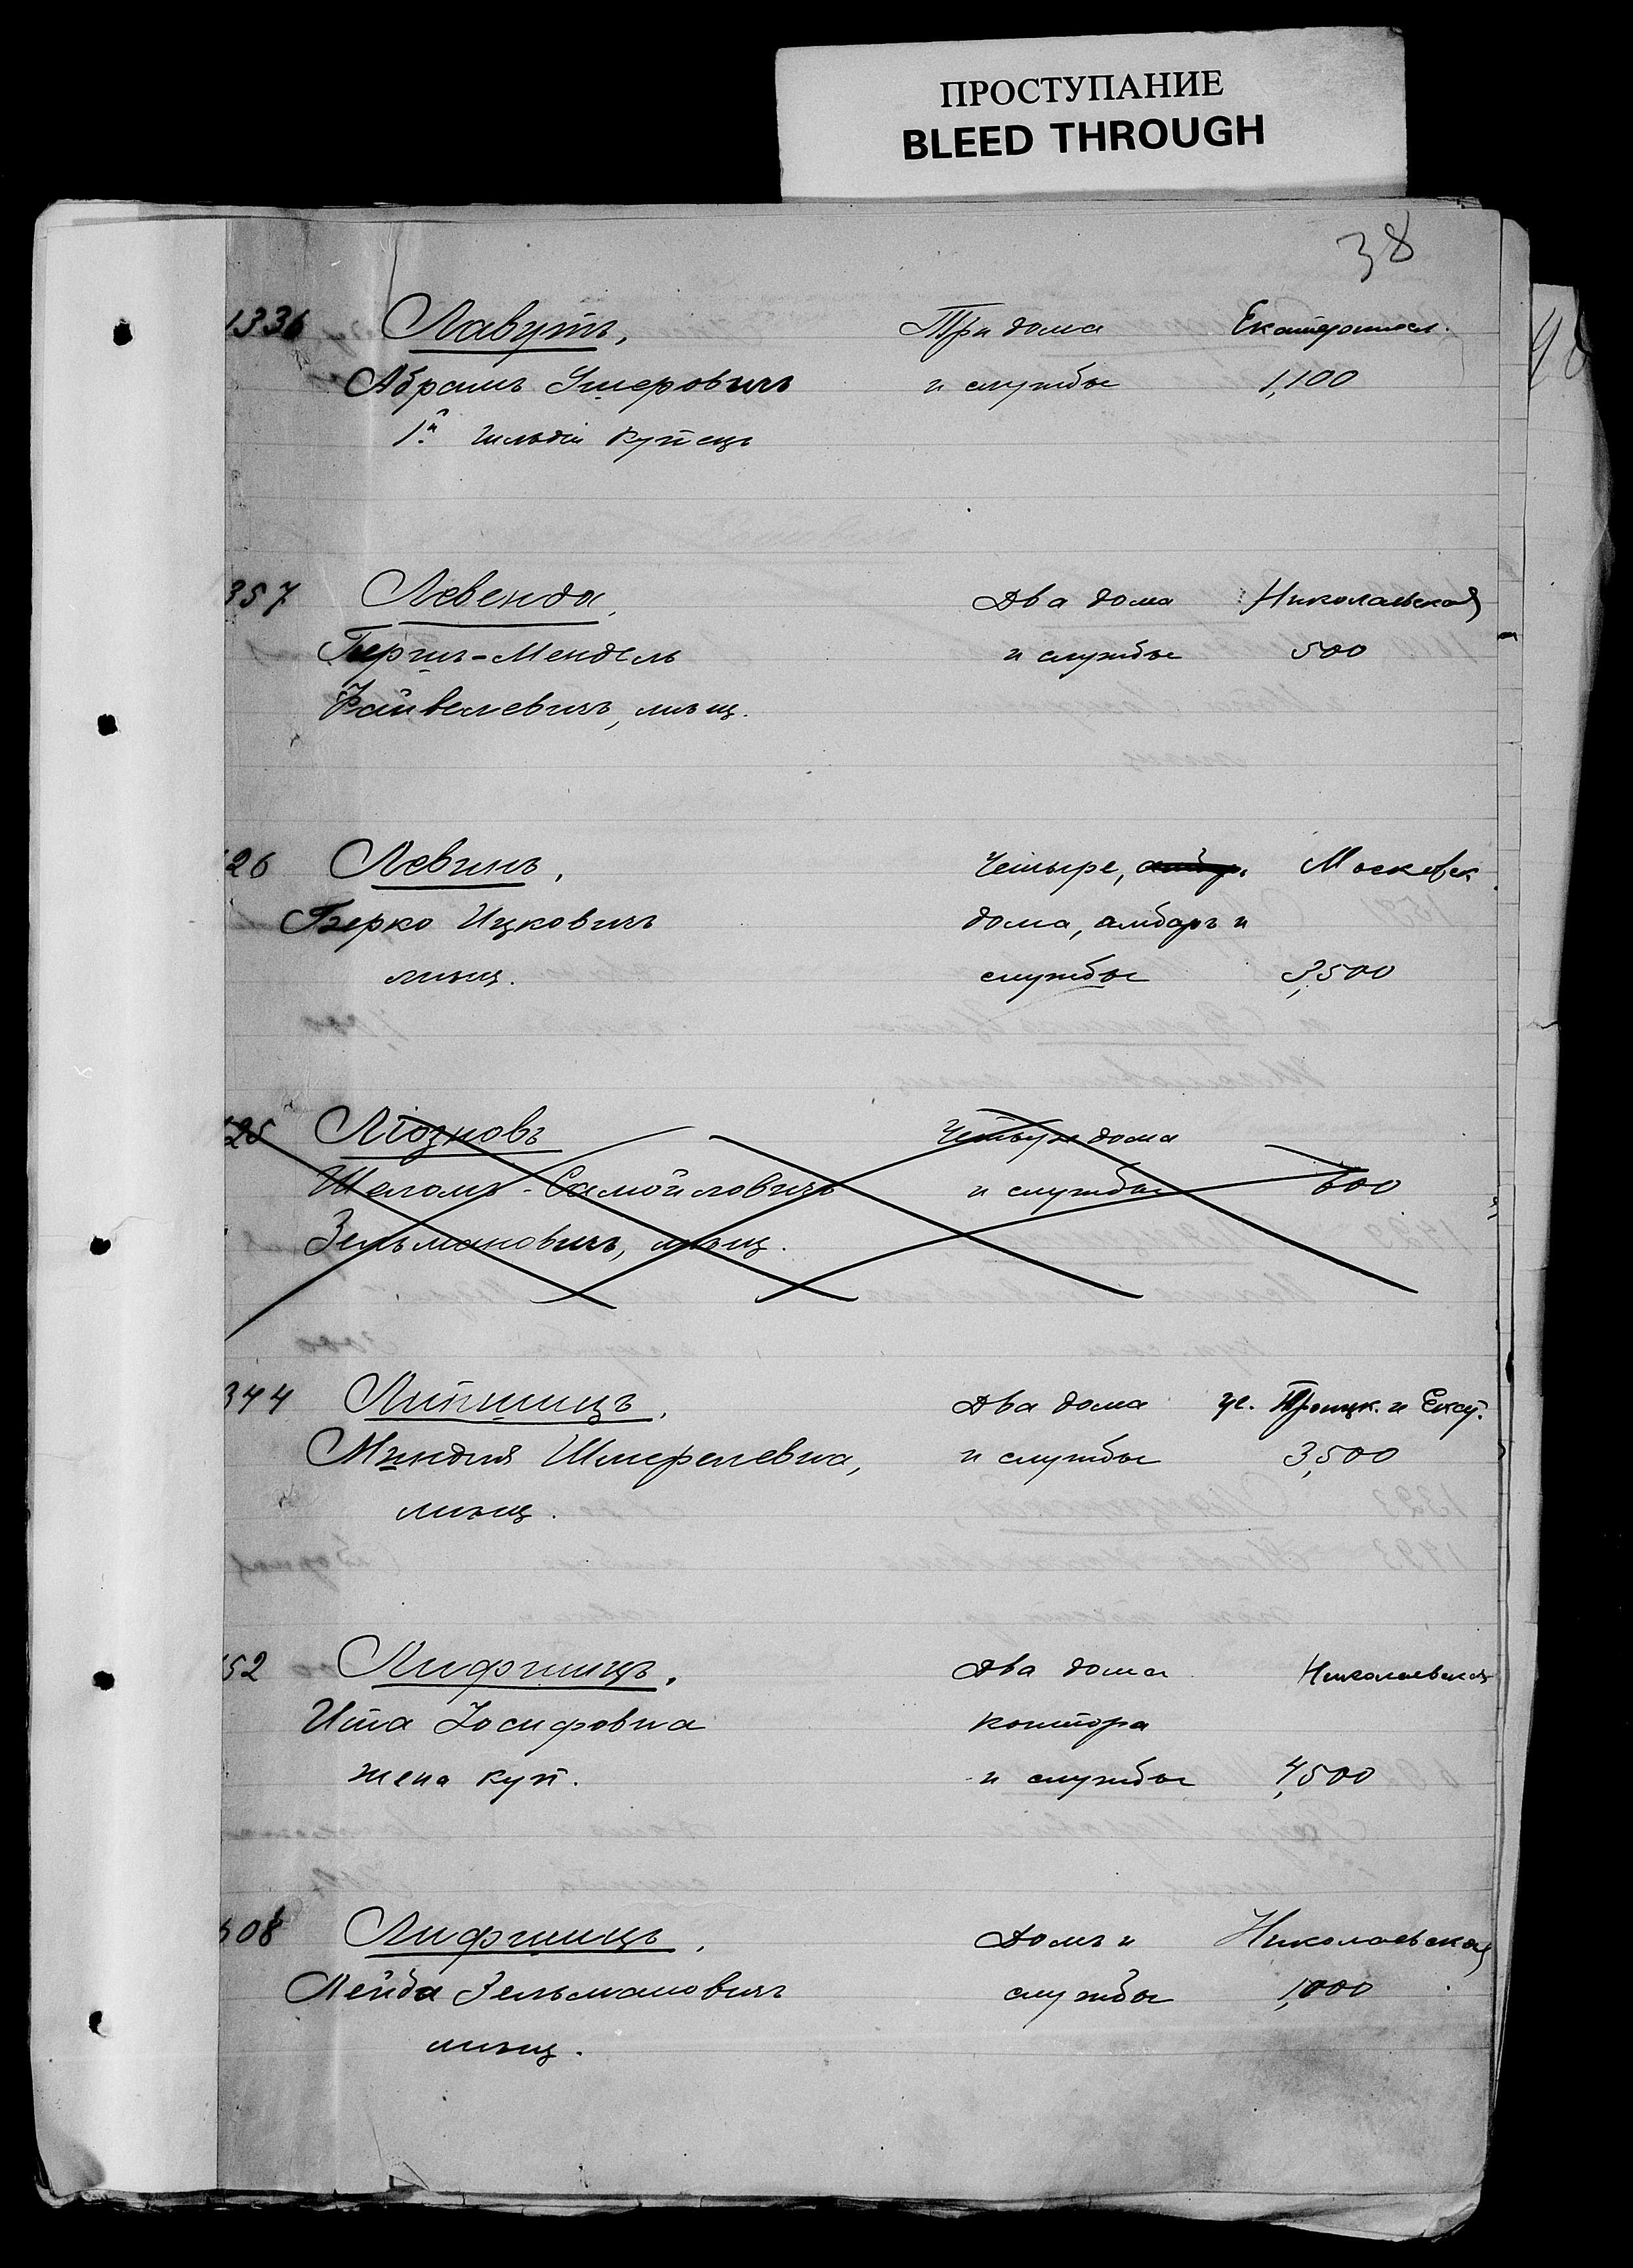 ПРОСТУПАНИЕ
BLEED THROUGH
38
1336 Лавутъ, Три дома Екатериносл.
Абрамъ Умеровичъ и службы 1,100
1й гильдіи купецъ
357 Левенда, Два дома Николаевской
Гершъ-Мендель и службы 500
Файвелевичъ, мѣщ.
26 Левинъ, Четыре, Московск
Берко Ицковичъ дома, амбаръ и
мѣщ. службы 3,500
25 Ліозновъ Четыре дома
Шеломъ-Самойловичъ и службы 600
Зельмановичъ, мѣщ.
344 Липшицъ, Два дома ус. Троицк. и Екат.
Миндля Шмерелевна, и службы 3,500
мѣщ.
52 Лифшицъ, Два дома Николаевская
Ита Іосифовна контора
жена куп. и службы 4,500
608 Лифшицъ, Домъ и Николаевская
Лейба Зельмановичъ службы 1,000
мѣщ.